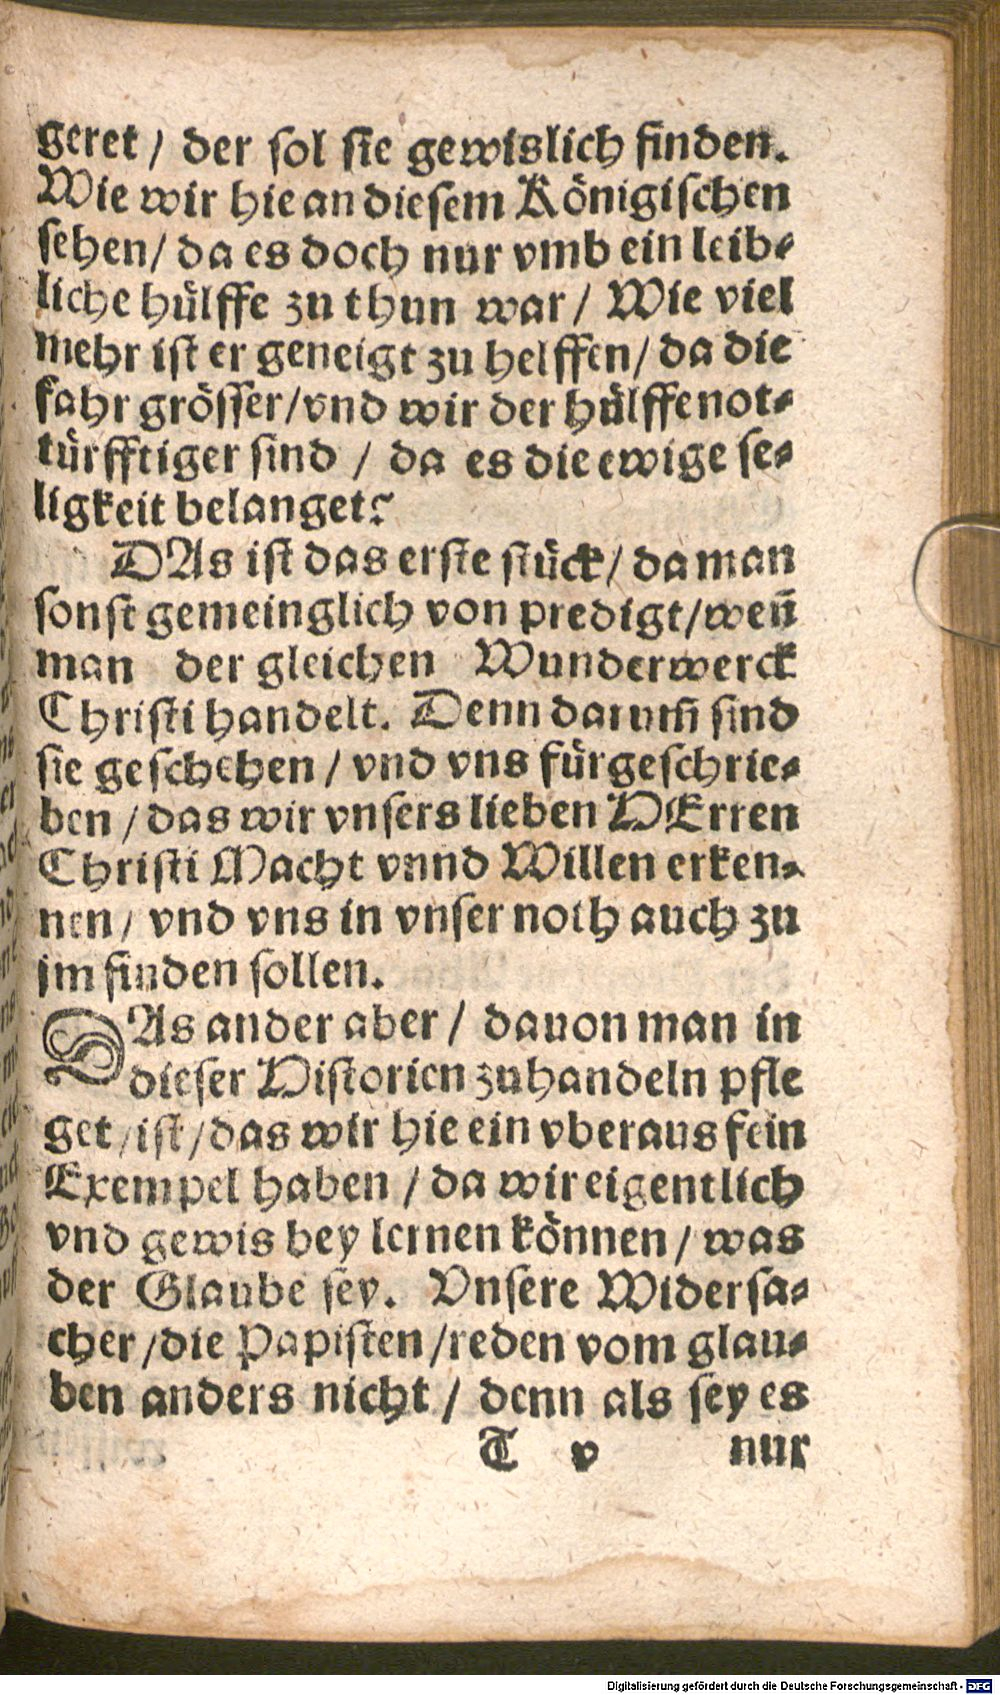 geret / der sol sie gewislich finden.
Wie wir hie an diesem Königischen
sehen / da es doch nur vmb ein leib⸗
liche hülffe zu thun war / Wie viel
mehr ist er geneigt zu helffen / da die
fahr grösser / vnd wir der hülffe not⸗
türfftiger sind / da es die ewige se⸗
ligkeit belanget?
DAs ist das erste stück / da man
sonst gemeinglich von predigt / weñ
man der gleichen Wunderwerck
Christi handelt. Denn darum̃ sind
sie geschehen / vnd vns fürgeschrie⸗
ben / das wir vnsers lieben HErren
Christi Macht vnnd Willen erken⸗
nen / vnd vns in vnser noth auch zu
jm finden sollen.
DAs ander aber / dauon man in
dieser Historien zuhandeln pfle
get / ist / das wir hie ein vberaus fein
Exempel haben / da wir eigentlich
vnd gewis bey lernen können / was
der Glaube sey. Vnsere Widersa⸗
cher / die Papisten / reden vom glau⸗
ben anders nicht / denn als sey es
T v nur
Digitalisierung gefördert durch die Deutsche Forschungsgemeinschaft - DFG